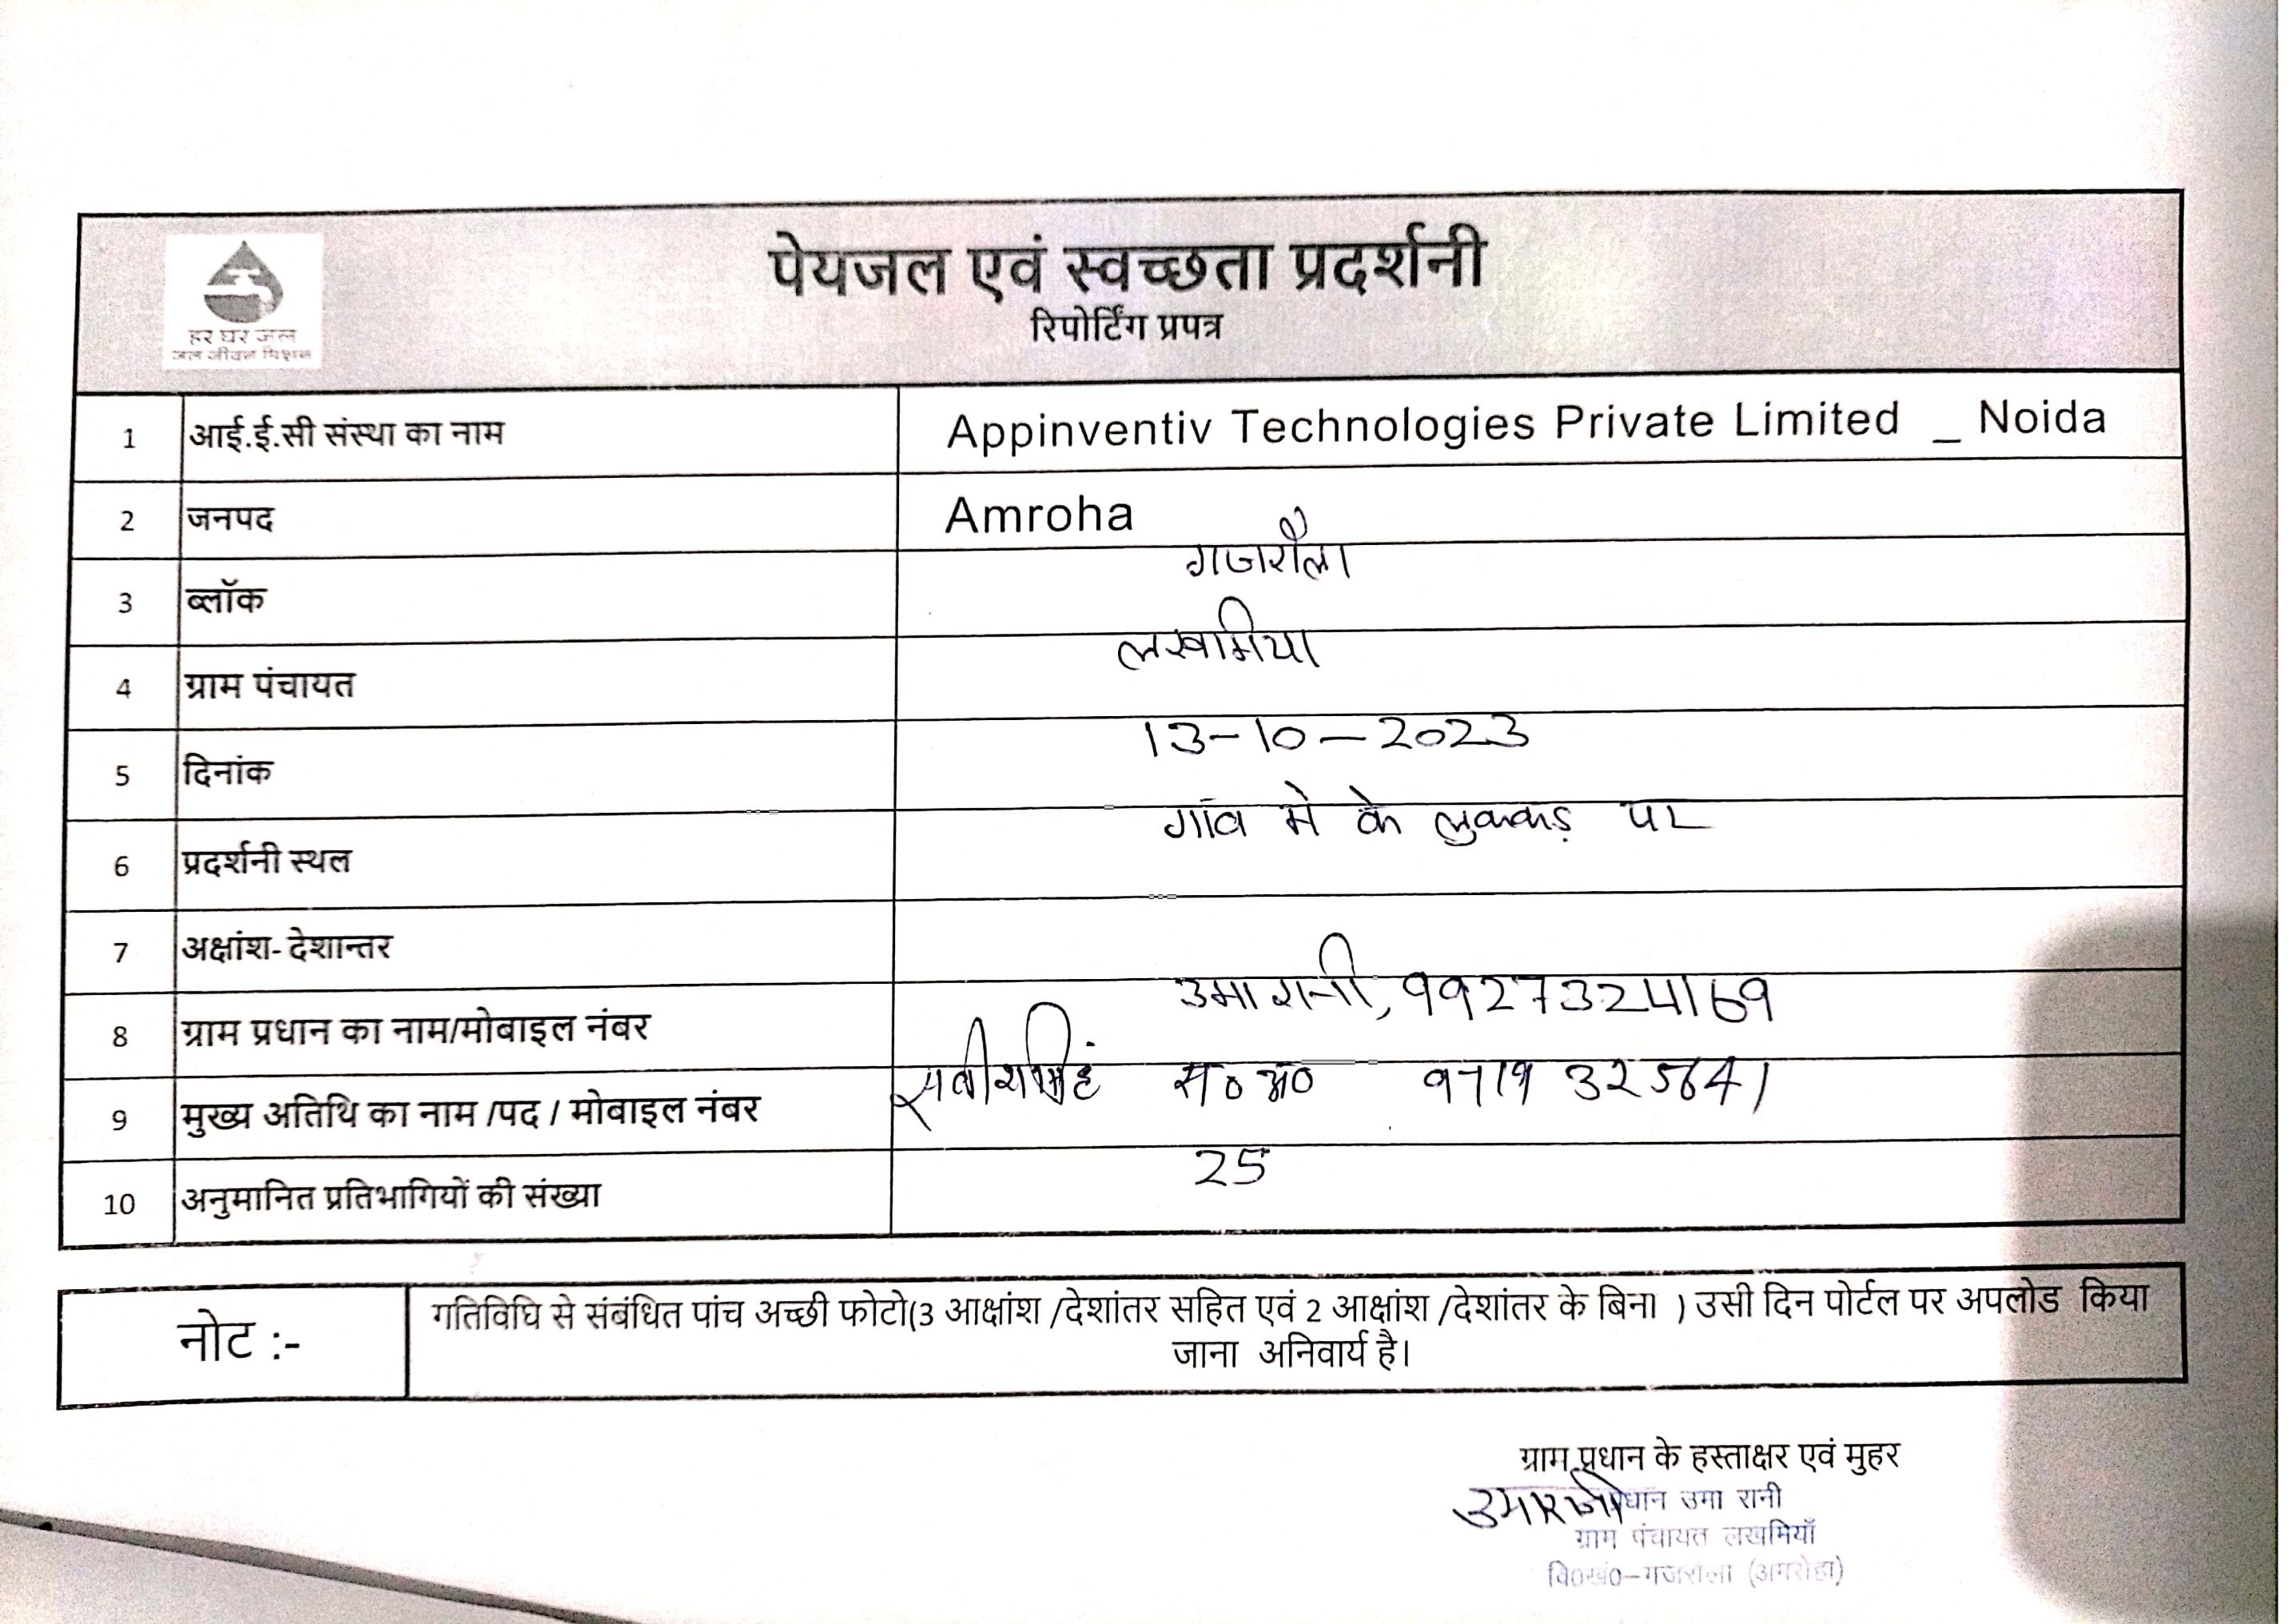 हर घर जल
जल जीवन मिशन
पेयजल एवं स्वच्छता प्रदर्शनी
रिपोर्टिंग प्रपत्र
1 आई.ई.सी संस्था का नाम Appinventiv Technologies Private Limited _ Noida
2 जनपद Amroha
3 ब्लॉक गजरौला
4 ग्राम पंचायत लखमिया
5 दिनांक 13-10-2023
6 प्रदर्शनी स्थल गांव मे के नुक्कड़ पर
7 अक्षांश- देशान्तर
8 ग्राम प्रधान का नाम/मोबाइल नंबर उमा रानी, 9927324169
9 मुख्य अतिथि का नाम /पद / मोबाइल नंबर स०अ०
10 अनुमानित प्रतिभागियों की संख्या 25
नोट :- गतिविधि से संबंधित पांच अच्छी फोटो(3 आक्षांश /देशांतर सहित एवं 2 आक्षांश /देशांतर के बिना ) उसी दिन पोर्टल पर अपलोड किया
जाना अनिवार्य है।
ग्राम प्रधान के हस्ताक्षर एवं मुहर
उमा रानी
ग्राम पंचायत लखमियाँ
वि०खं०-गजरौला (अमरोहा)